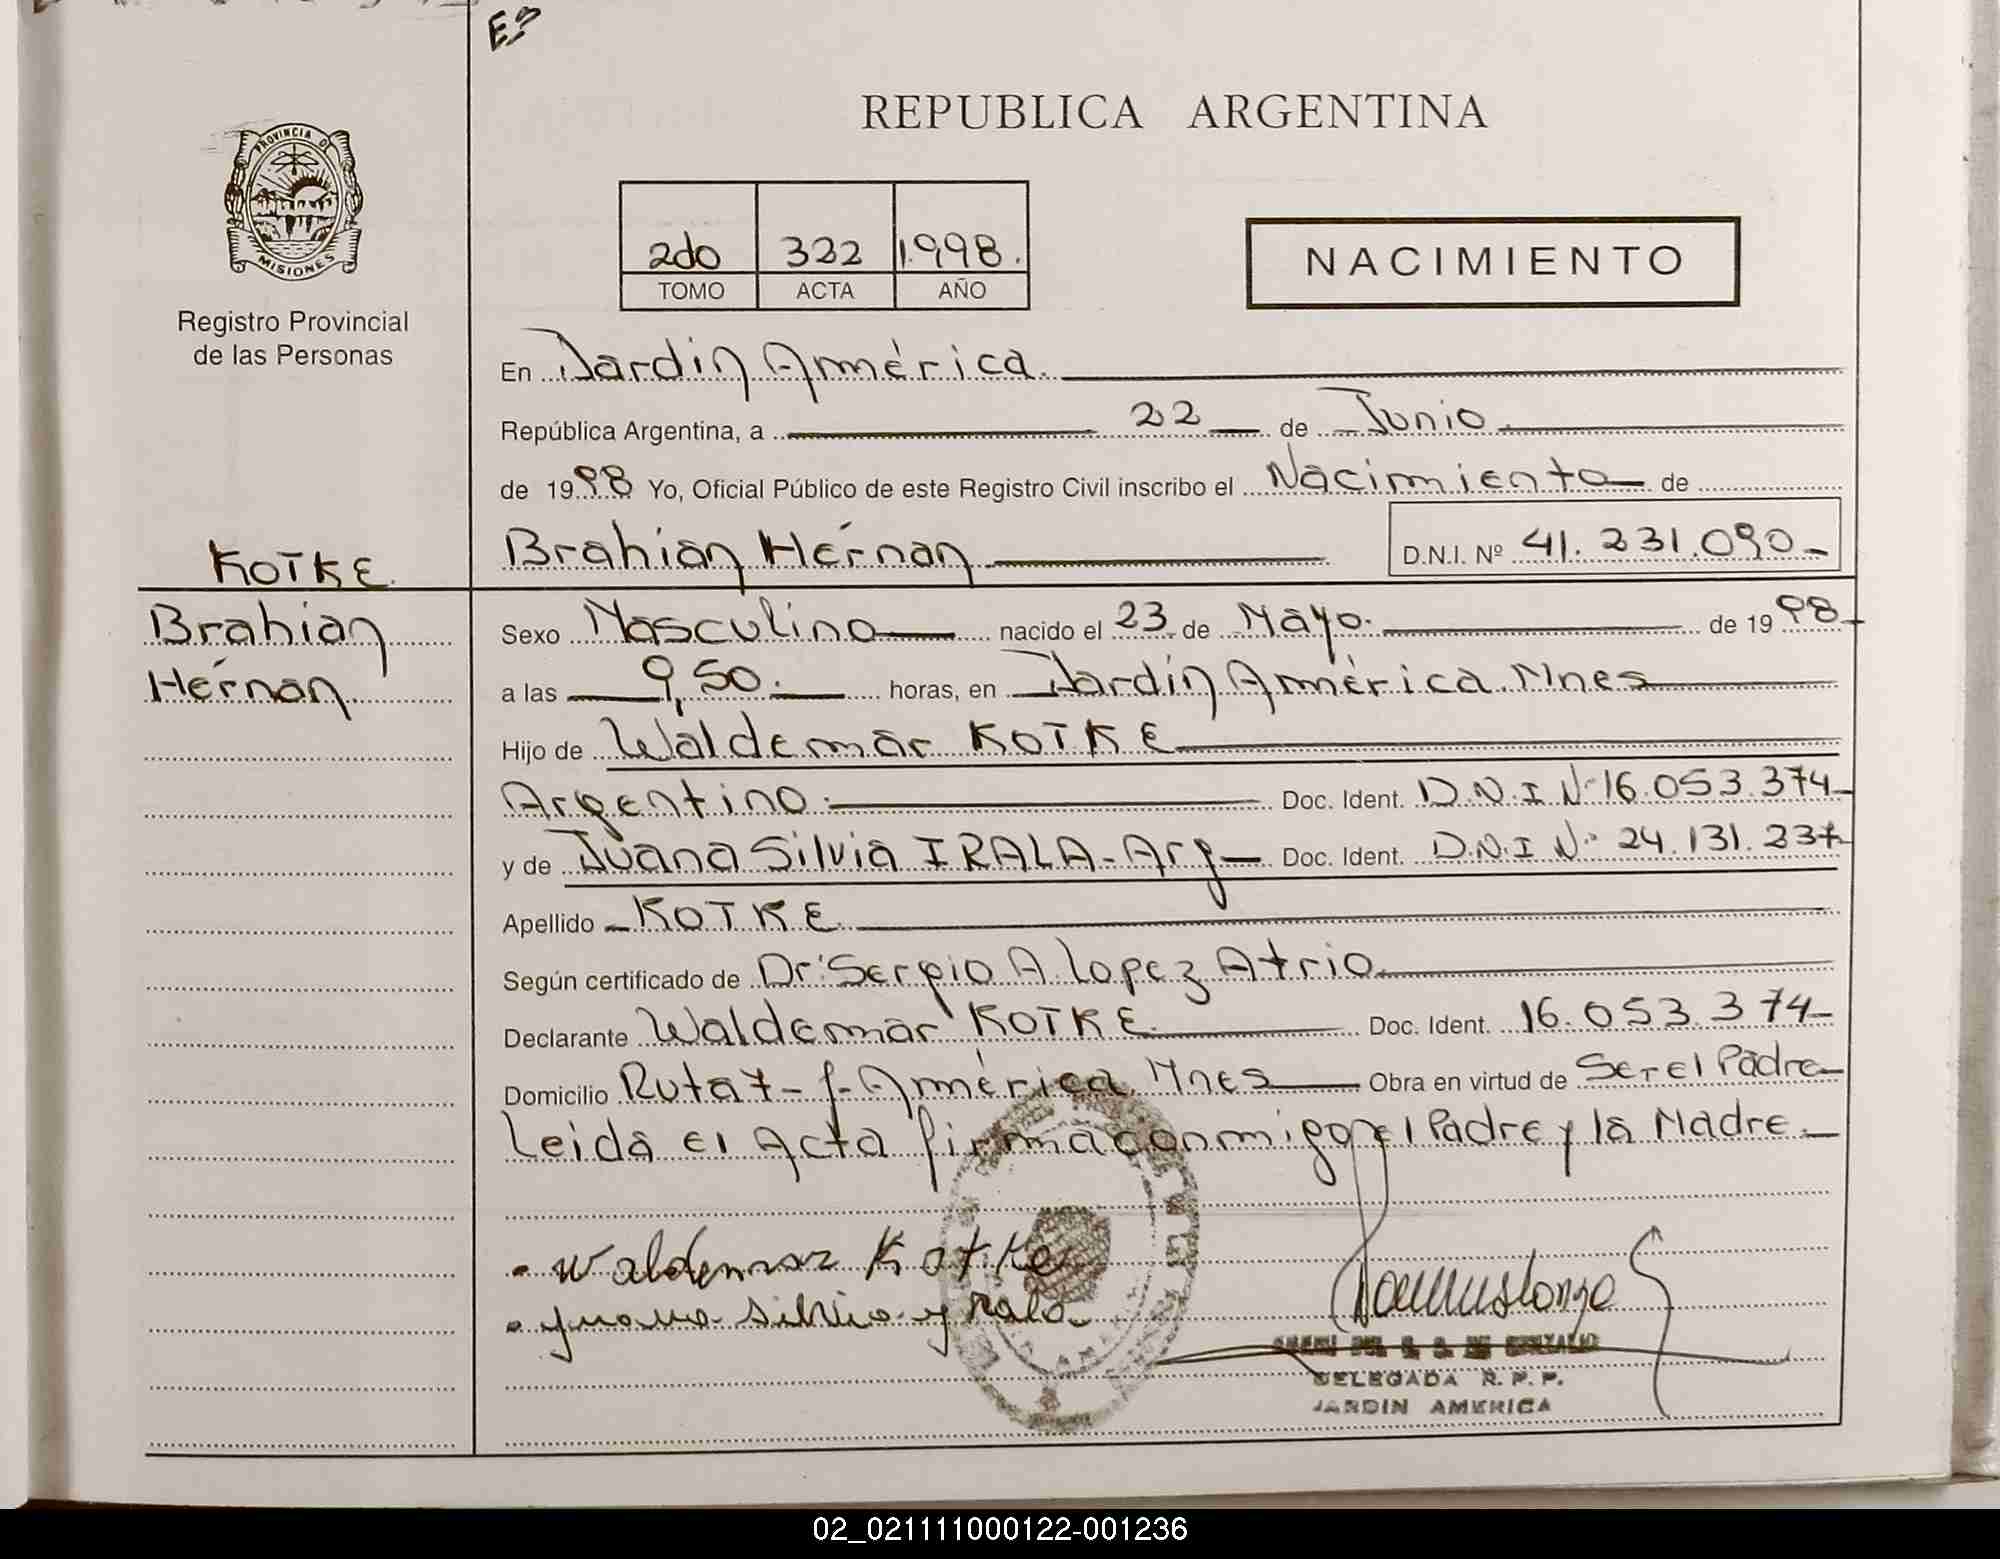 E3
REPUBLICA ARGENTINA
PROVINCIA DE
MISIONES
Registro Provincial
de las Personas
2do 322 1.998.
TOMO ACTA AÑO
NACIMIENTO
En Jardín América.
República Argentina, a 22 de Junio
de 1998 Yo, Oficial Público de este Registro Civil inscribo el Nacimiento de
KOTKE.
Brahian Hérnan D.N.I. Nº 41.231.090
Brahian
Hérnan
Sexo Masculino nacido el 23 de Mayo. de 1998
a las 9,50. horas, en Jardín América Mnes
Hijo de Waldemar KOTKE
Argentino. Doc. Ident. D.N.I Nº 16.053.374
y de Juana Silvia IRALA-Arg Doc. Ident. D.N.I Nº 24.131.237
Apellido KOTKE.
Según certificado de Dr: Sergio A. Lopez Atrio
Declarante Waldemar KOTKE Doc. Ident. 16.053.374
Domicilio Ruta 7-J-América Mnes Obra en virtud de Ser el Padre
Leida el Acta firma conmigo el Padre y la Madre.
Waldemar Kotke
Juana Silvia Irala
DELEGADA R. P. P.
JARDIN AMERICA
02_021111000122-001236